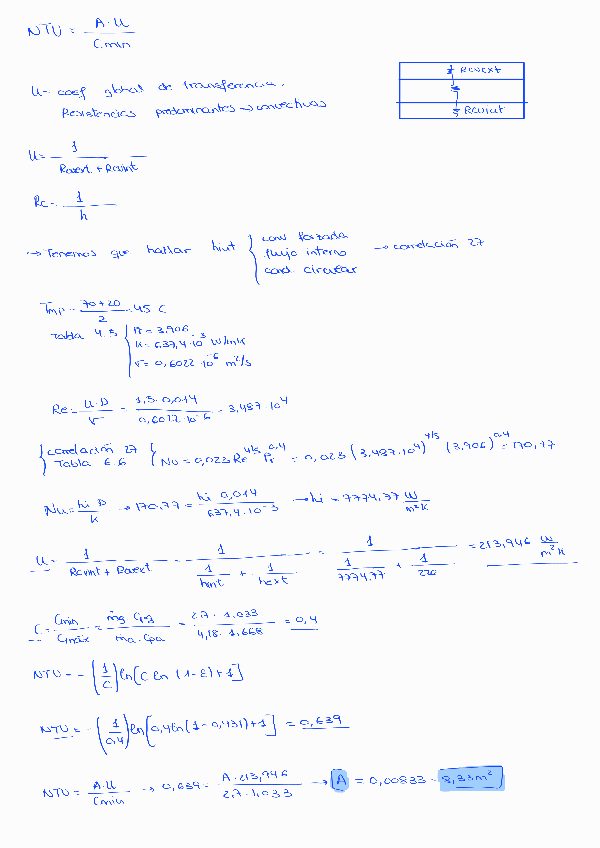 NTU = A·U / Cmin
U = coef global de transferencia.
Resistencias predominantes → convectivas
Rcvext
Rcvint
U = 1 / Rcvext + Rcvint
Rc = 1 / h
→ Tenemos que hallar hint { conv forzada
flujo interno → correlación 27
cond. circular
Tmp = 70+20 / 2 = 45 C
Tabla 4.3 { Pr = 3,906
k = 637,4·10^-3 W/mk
v = 0,6022·10^-6 m²/s
Re = u·D / v = 1,5·0,014 / 0,6022·10^-6 = 3,487·10^4
{ correlación 27
Tabla 6.6 { Nu = 0,023 Re^4/5 Pr^0,4 = 0,023 (3,487·10^4)^4/5 (3,906)^0,4 = 170,77
Nu = hi·D / k → 170.77 = hi 0,014 / 637,4·10^-3 → hi = 7774,77 W/m²K
U = 1 / Rcvint + Rcvext = 1 / (1/hint + 1/hext) = 1 / (1/7774.77 + 1/220) = 213,946 W/m²K
C = Cmin / Cmáx = ṁg·Cpg / ṁa·Cpa = 2,7·1,033 / 4,18·1,668 = 0,4
NTU = -(1/C) ln[C ln (1-ε)+1]
NTU = -(1/0,4) ln[0,4 ln(1-0,431)+1] = 0,639
NTU = A·U / Cmin → 0,639 = A·213,946 / 2,7·1,033 → A = 0,00833 = 8,33m²